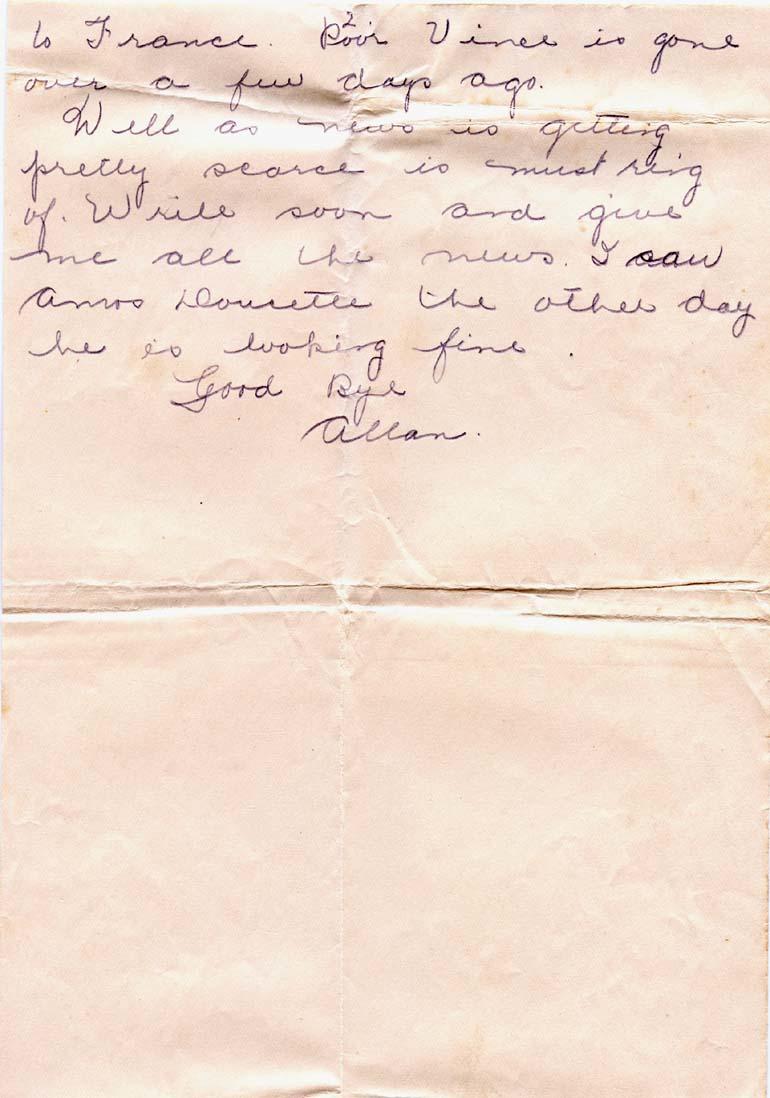 2
to France. Poor Vince is gone
over a few days ago.
Well as news is getting
pretty scarce is must ring
of. Write soon and give
me all the news. I saw
Amos Doucette the other day
he is looking fine.
Good Bye
Allan.